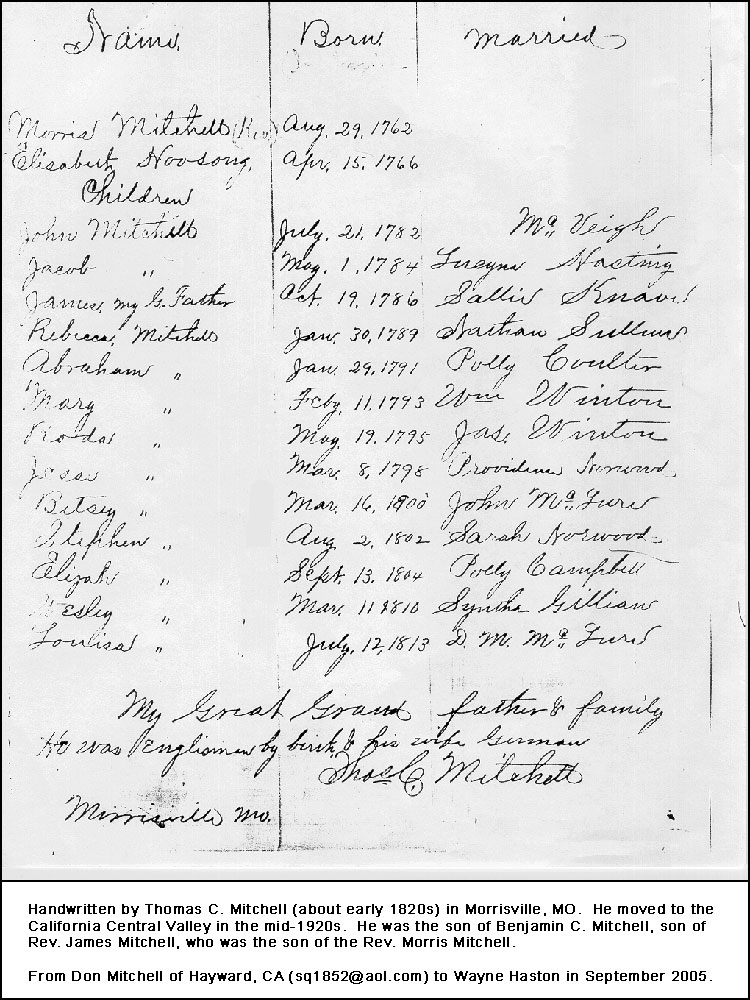 Name. Born. Married
Morris Mitchell (Rev) Aug. 29, 1762
Elisabeth Apr. 15, 1766
Children
John Mitchell July. 21, 1782 Mc Veigh
Jacob " May. 1, 1784 Hasting
James, my G. Father Oct. 19, 1786 Sallie
Rebecca, Mitchell Jan, 30, 1789 Nathan Sullins
Abraham " Jan. 29, 1791 Polly Coulter
Mary " Feby. 11, 1793 Wm Winton
Roda " May. 19, 1795 Jas. Winton
Jesse " Mar. 8, 1798 Norwood
Betsey " Mar. 16, 1800 John Mc Lure
Stephen " Aug. 2, 1802 Sarah Norwood
Elizah " Sept. 13. 1804 Polly Campbell
Wesley " Mar. 11 1810 Syntha Gillian
Louiisa " July, 12, 1813 D. M. Mc Lure
My Great Grand father & family
He was Englisman by birth & his wife German
Thos C. Mitchell
Morrisville Mo.
Handwritten by Thomas C. Mitchell (about early 1820s) in Morrisville, MO. He moved to the
California Central Valley in the mid-1920s. He was the son of Benjamin C. Mitchell, son of
Rev. James Mitchell, who was the son of the Rev. Morris Mitchell.
From Don Mitchell of Hayward, CA (sq1852@aol.com) to Wayne Haston in September 2005.